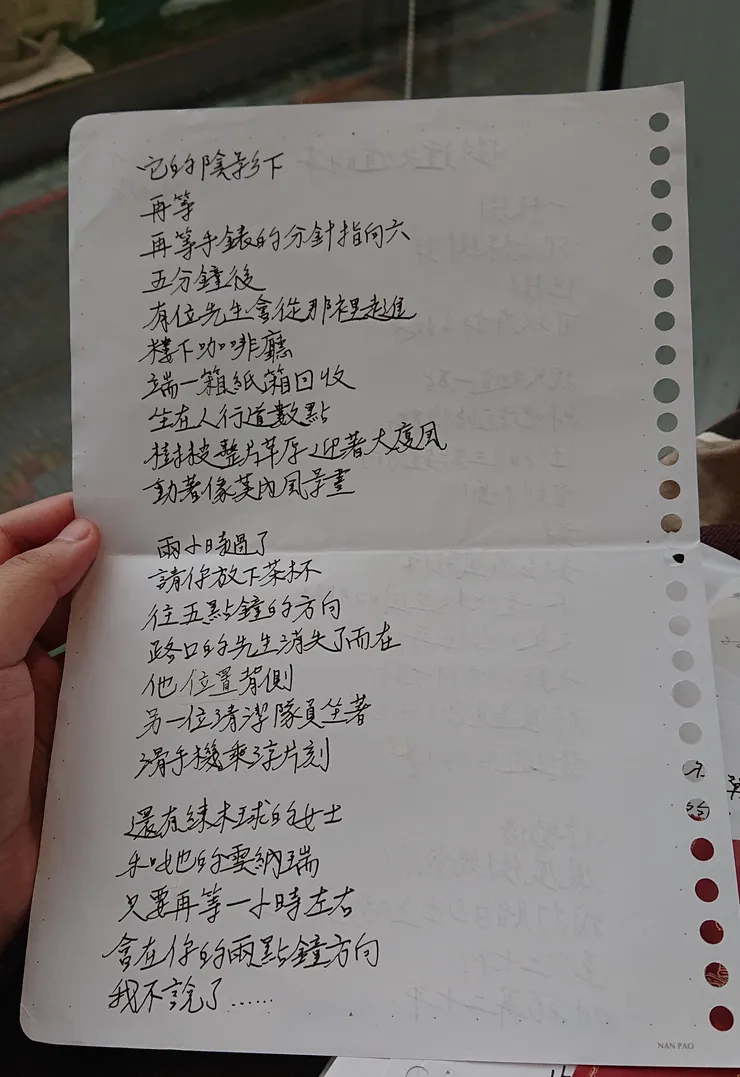 它的陰影下
再等
再等手錶的分針指向六
五分鐘後
有位先生會從那裡走進
樓下咖啡廳
端一箱紙箱回收
坐在人行道數點
樹枝整片草原迎著大度風
動著像莫內風景畫
兩小時過了
請你放下茶杯
往五點鐘的方向
路口的先生消失了而在
他位置背側
另一位清潔隊員坐著
滑手機乘涼片刻
還有練木球的女士
和她的雪納瑞
只要再等一小時左右
會在你的兩點鐘方向
我不說了……
NAN PAO